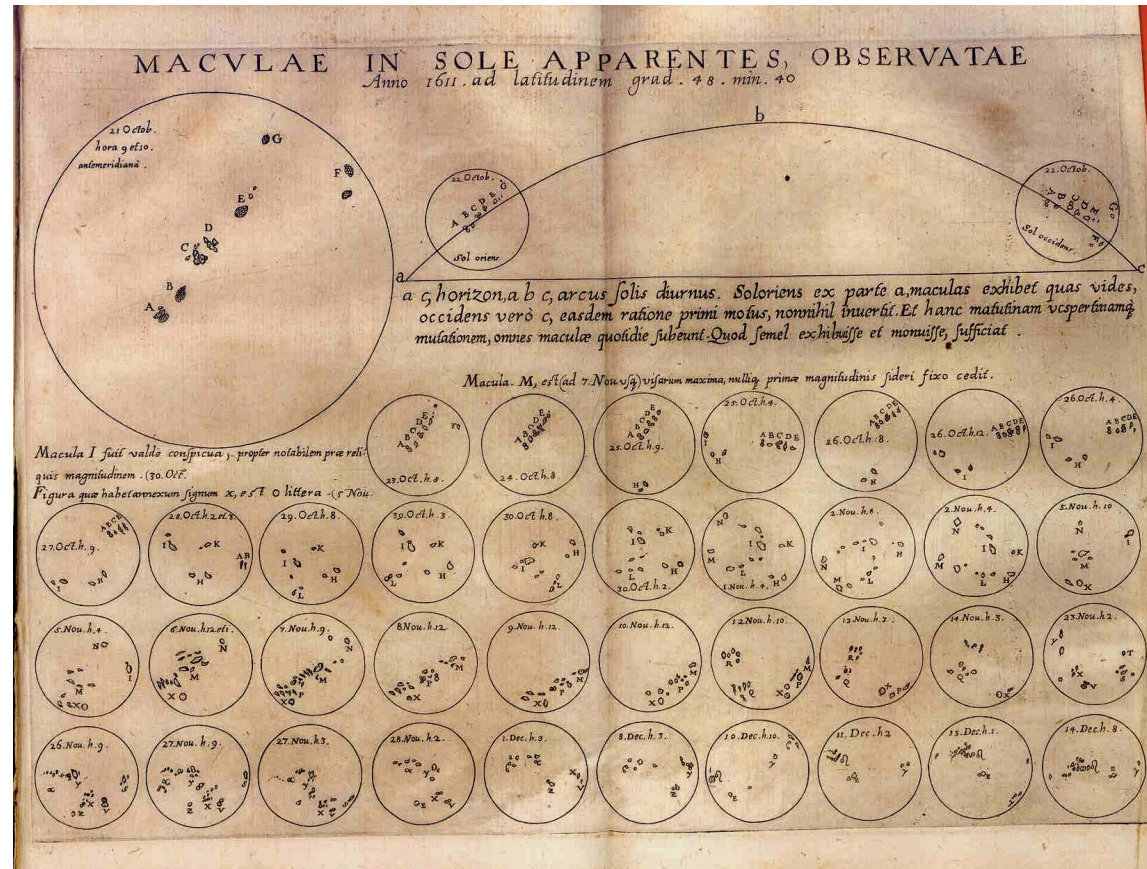 MACVLAE IN SOLE APPARENTES, OBSERVATAE
Anno 1611. ad latitudinem grad. 48. min. 40
21 Octob.
hora 9 et 10.
antemeridianâ.
G
F
E
D
C
B
A
22. Octob.
A B C D E G
Sol oriens
a
b
22. Octob.
A B C D E G
F
Sol occidens.
c
a c, horizon, a b c, arcus solis diurnus. Sol oriens ex parte a, maculas exhibet quas vides,
occidens verò c, easdem ratione primi motus, nonnihil inuertit. Et hanc matutinam vespertinamq́
mutationem, omnes maculæ quotidie subeunt. Quod semel exhibuisse et monuisse, sufficiat.
Macula. M, est (ad 7. Nou. vsq́) visarum maxima, nulliq́ primæ magnitudinis sideri fixo cedit.
Macula I fuit valdè conspicua, propter notabilem præ reli-
quis magnitudinem. (30. Oct.
Figura quæ habet annexum signum x, est O littera. (5 Nou.
A B C D E F
23. Oct. h. 8.
A B C D E
24. Oct. h. 8
A B C D E
25. Oct. h. 9.
H
25. Oct. h. 4.
I A B C D E
H
A B C D E
26. Oct. h. 8.
H
26. Oct. h. 12. A B C D E
I
26. Oct. h. 4.
A B C D E
I
H
A B C D E
27. Oct. h. 9.
I H
28. Oct. h. 2 et 3.
I K
A B
H
29. Oct. h. 8.
K
I
H
L
30. Oct. h. 3
I K
H
L
30. Oct. h. 8.
K
H
I
L
I K
L H
30. Oct. h. 2.
N
I K
M
L H
1. Nou. h. 4.
2. Nou. h. 8.
I H
N
M L
2. Nou. h. 4.
N I K
M
L H
5. Nou. h. 10
N
I
M
O X
5. Nou. h. 4.
N
I
M
X O
6. Nou. h. 12 et 1.
N
M
X O
7. Nou. h. 9.
N
M
P
X O
8. Nou. h. 12
M
P
X O
9. Nou. h. 12.
M
P
X O
10. Nou. h. 12.
M
P
X O
12. Nou. h. 10.
R
M
P
Q X O
13. Nou. h. 3.
R
Q
O X P
14. Nou. h. 3.
Q
O X
23. Nou. h. 2.
y
T
S
V
26. Nou. h. 9.
α y
S
X
Z V
27. Nou. h. 9.
α y
S
X
Z V
27. Nou. h. 3.
α
y
X
Z V
28. Nou. h. 2.
α y
X
Z
1. Dec. h. 3.
Z
8. Dec. h. 3.
y
Z
10. Dec. h. 10.
11. Dec. h 2
y
13. Dec. h. 1.
14. Dec. h. 8.